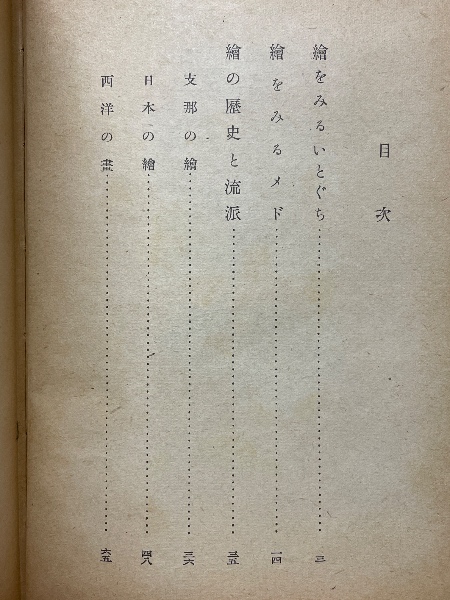 目次
繪をみるいとぐち……三
繪をみるメド……一四
繪の歷史と流派……三五
支那の繪……三六
日本の繪……四八
西洋の畫……六五